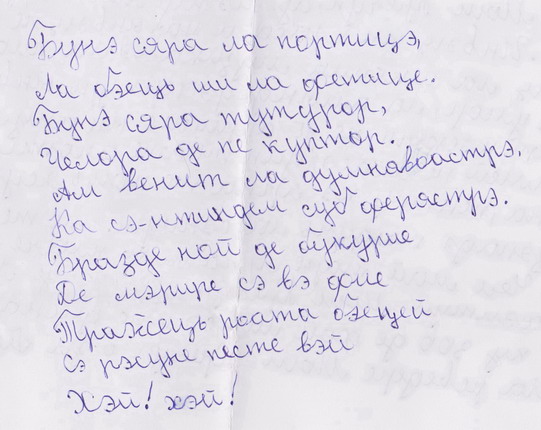 Бунэ сяра ла портицэ,
Ла бэець ши ла фетице.
Бунэ сяра тутурор,
Челора де пе куптор.
Ам венит ла думнавоастрэ,
Ка сэ-нтиндем суб ферястрэ.
Бразде ной де букурие
Де мэрире сэ вэ фие
Траӂець роата бэецей
Сэ рэсуне песте вэй
Хэй! хэй!